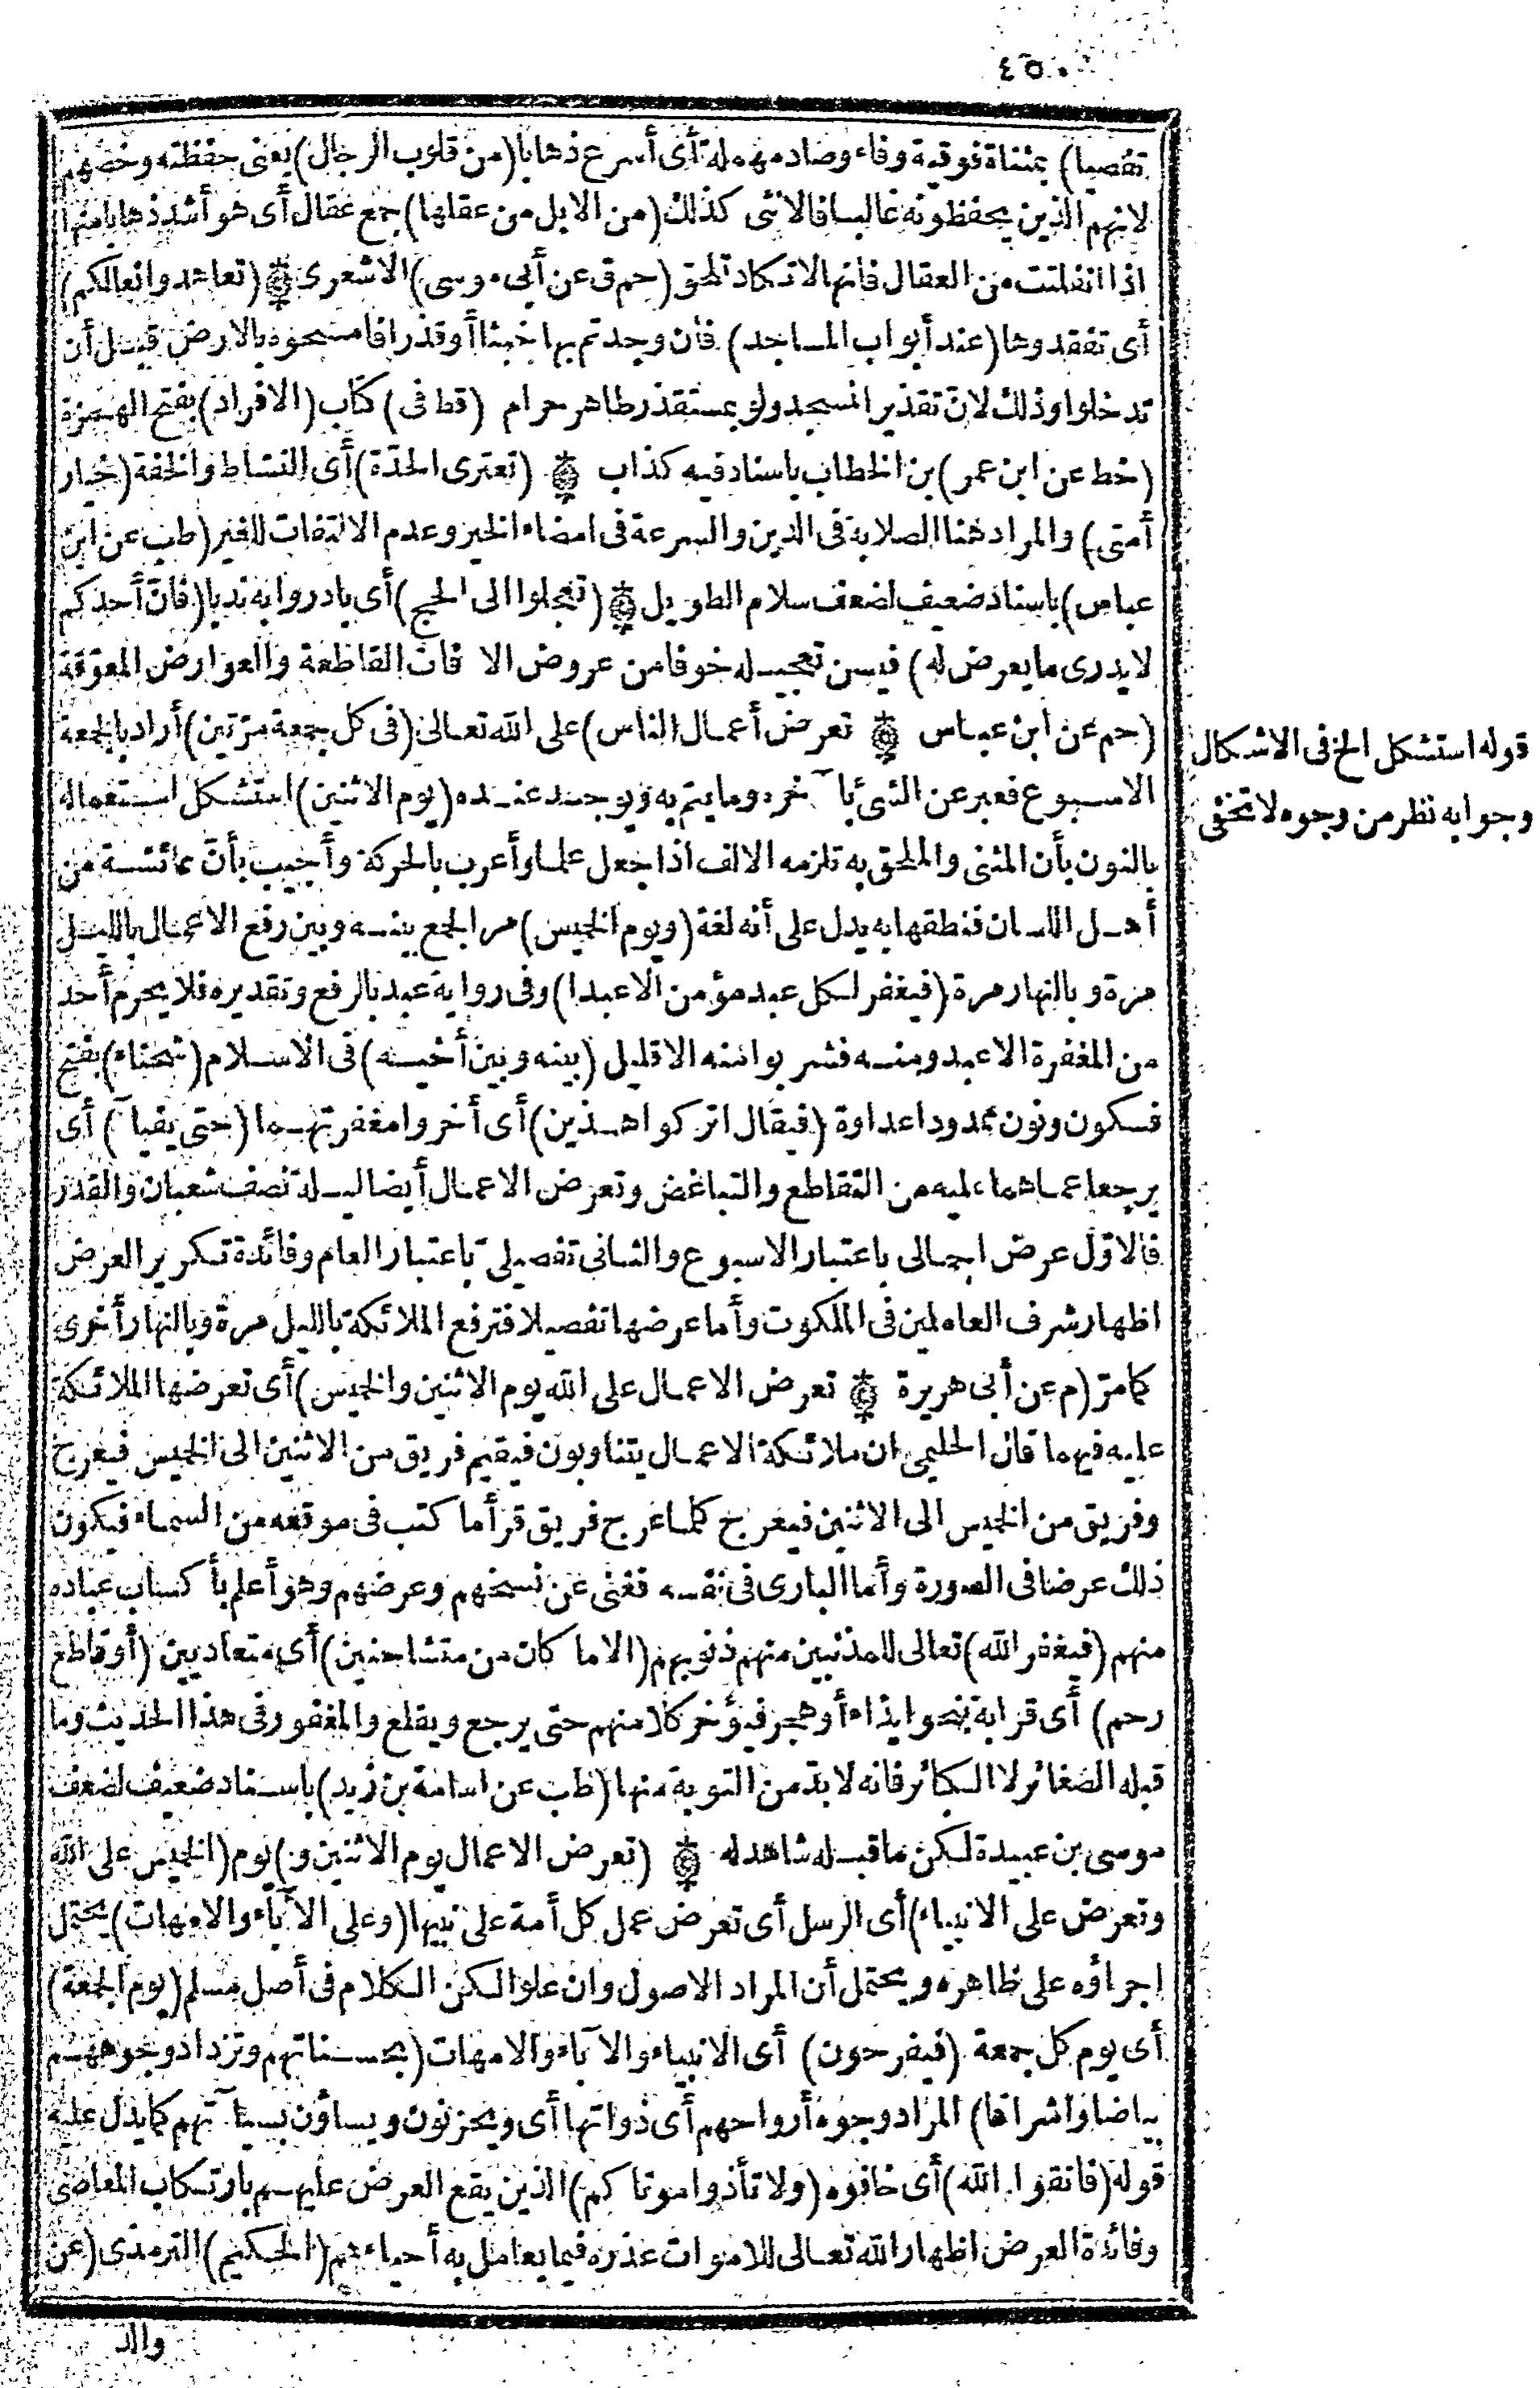 ٤٥٠
تفصيا) بمثناة فوقية وفاء وصاد مهملة أى أسرع ذهابا (من قلوب الرجال) يعنى حفظته وخصهم
لانهم الذين يحفظونه غالبا فالانثى كذلك (من الابل من عقلها) جمع عقال أى هو أشد ذهابا منها
اذا انفلتت من العقال فانها لا تكاد تلحق (حم ق عن أبى موسى) الاشعرى ۞ (تعاهدوا نعالكم)
أى تفقدوها (عند أبواب المساجد) فان وجدتم بها خبثا أو قذرا فامسحوه بالارض قبل أن
تدخلوا وذلك لان تقذير المسجد ولو بمستقذر طاهر حرام (قط فى) كتاب (الافراد) بفتح الهمزة
(خط عن ابن عمر) بن الخطاب باسناد فيه كذاب ۞ (تعترى الحدّة) أى النشاط والخفة (خيار
أمتى) والمراد هنا الصلابة فى الدين والسرعة فى امضاء الخير وعدم الالتفات للغير (طب عن ابن
عباس) باسناد ضعيف لضعف سلام الطويل ۞ (تعجلوا الى الحج) أى بادروا به ندبا (فانّ أحدكم
لا يدرى ما يعرض له) فيسن تعجيله خوفا من عروض الا فات القاطعة والعوارض المعوّقة
(حم عن ابن عباس ۞ تعرض أعمال الناس) على الله تعالى (فى كل جمعة مرّتين) أراد بالجمعة
الاسبوع فعبر عن الشئ بآخره وما يتم به ويوجد عنده (يوم الاثنين) استشكل استعماله
بالنون بأن المثنى والملحق به تلزمه الالف اذا جعل علما وأعرب بالحركة وأجيب بأنّ عائشة من
أهل اللسان فنطقها به يدل على أنه لغة (ويوم الخميس) مر الجمع بينه وبين رفع الاعمال بالليل
مرة وبالنهار مرة (فيغفر لكل عبد مؤمن الا عبدا) وفى رواية عبد بالرفع وتقديره فلا يحرم أحد
من المغفرة الا عبد ومنه فشربوا منه الا قليل (بينه وبين أخيه) فى الاسلام (شحناء) بفتح
فسكون ونون ممدودا عداوة (فيقال اتركوا هذين) أى أخروا مغفرتهما (حتى يفيآ) أى
يرجعا عما هما عليه من التقاطع والتباغض وتعرض الاعمال أيضا ليلة نصف شعبان والقدر
فالاوّل عرض اجمالى باعتبار الاسبوع والثانى تفصيلىّ باعتبار العام وفائدة تكرير العرض
اظهار شرف العاملين فى الملكوت وأما عرضها تفصيلا فترفع الملائكة بالليل مرة وبالنهار أخرى
كما مرّ (م عن أبى هريرة ۞ تعرض الاعمال على الله يوم الاثنين والخميس) أى تعرضها الملائكة
عليه فيهما قال الحليمى ان ملائكة الاعمال يتناوبون فيقيم فريق من الاثنين الى الخميس فيعرج
وفريق من الخميس الى الاثنين فيعرج كلما عرج فريق قرأ ما كتب فى موقعه من السماء فيكون
ذلك عرضا فى الصورة وأما البارى فى نفسه فغنى عن نسخهم وعرضهم وهو أعلم بأكساب عباده
منهم (فيغفر الله) تعالى للمذنبين منهم ذنوبهم (الا ما كان من متشاحنين) أى متعاديين (أو قاطع
رحم) أى قرابة بنحو ايذاء أو هجر فيؤخر كلا منهم حتى يرجع ويقلع والمغفور فى هذا الحديث وما
قبله الصغائر لا الكبائر فانه لابدّ من التوبة منها (طب عن اسامة بن زيد) باسناد ضعيف لضعف
موسى بن عبيدة لكن ما قبله شاهد له ۞ (تعرض الاعمال يوم الاثنين و) يوم (الخميس على الله
وتعرض على الانبياء) أى الرسل أى تعرض عمل كل أمة على نبيها (وعلى الآباء والامهات) يحتمل
اجراؤه على ظاهره ويحتمل أن المراد الاصول وان علوا لكن الكلام فى أصل مسلم (يوم الجمعة)
أى يوم كل جمعة (فيفرحون) أى الانبياء والآباء والامهات (بحسناتهم وتزداد وجوههم
بياضا واشراقا) المراد وجوه أرواحهم أى ذواتها أى ويحزنون ويساؤن بسيآتهم كما يدل عليه
قوله (فاتقوا الله) أى خافوه (ولا تأذوا موتاكم) الذين يقع العرض عليهم بارتكاب المعاصى
وفائدة العرض اظهار الله تعالى للاموات عذره فيما يعامل به أحياءهم (الحكيم) الترمذى (عن
والد
قوله استشكل الخ فى الاشكال
وجوابه نظر من وجوه لا تخفى